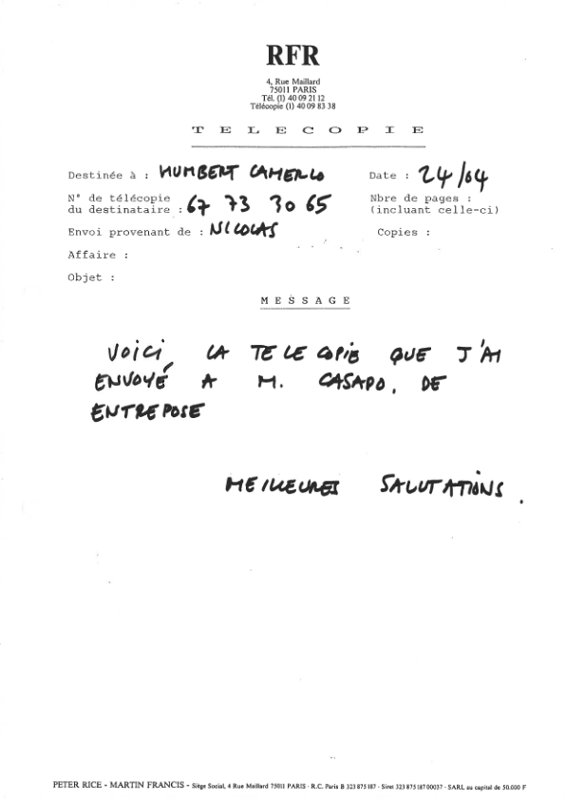 RFR
4, Rue Maillard
75011 PARIS
Tél. (1) 40 09 21 12
Télécopie (1) 40 09 83 38
TELECOPIE
Destinée à : HUMBERT CAMERLO Date : 24/04
N° de télécopie Nbre de pages :
du destinataire : 67 73 30 65 (incluant celle-ci)
Envoi provenant de : NICOLAS Copies :
Affaire :
Objet :
MESSAGE
VOICI, LA TELECOPIE QUE J'AI
ENVOYÉ A M. CASAPO, DE
ENTREPOSE
MEILLEURES SALUTATIONS.
PETER RICE - MARTIN FRANCIS - Siège Social, 4 Rue Maillard 75011 PARIS · R.C. Paris B 323 875 187 · Siret 323 875 187 00037 · SARL au capital de 50.000 F